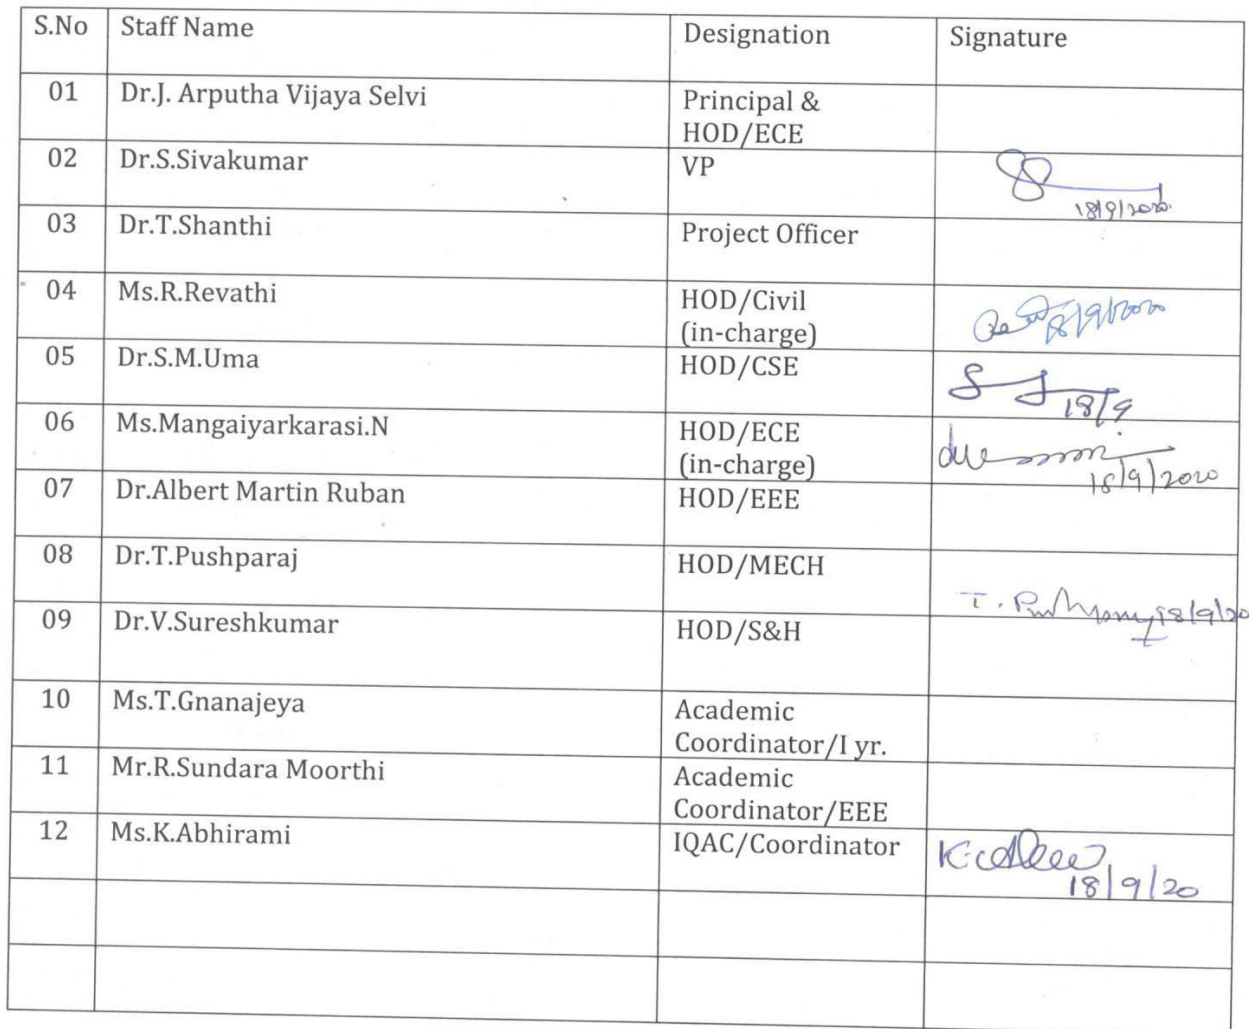 S.No Staff Name Designation Signature
01 Dr.J. Arputha Vijaya Selvi Principal &
HOD/ECE
02 Dr.S.Sivakumar VP
18/9/2020
03 Dr.T.Shanthi Project Officer
04 Ms.R.Revathi HOD/Civil
(in-charge) 18/9/2020
05 Dr.S.M.Uma HOD/CSE
18/9
06 Ms.Mangaiyarkarasi.N HOD/ECE
(in-charge) 18/9/2020
07 Dr.Albert Martin Ruban HOD/EEE
08 Dr.T.Pushparaj HOD/MECH
T. 18/9/20
09 Dr.V.Sureshkumar HOD/S&H
10 Ms.T.Gnanajeya Academic
Coordinator/I yr.
11 Mr.R.Sundara Moorthi Academic
Coordinator/EEE
12 Ms.K.Abhirami IQAC/Coordinator
18/9/20